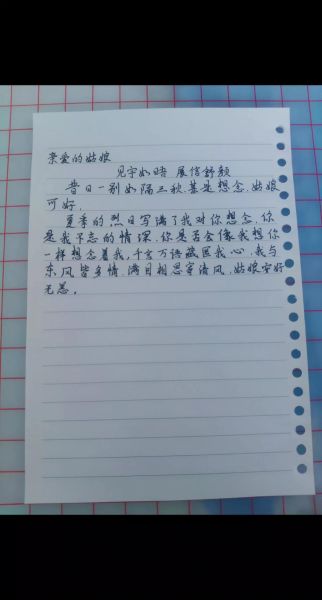 亲爱的姑娘
见字如晤 展信舒颜
昔日一别如隔三秋.甚是想念.姑娘
可好.
夏季的烈日写满了我对你想念.你
是我不忘的情深.你是否会像我想你
一样想念着我,千言万语藏匿我心.我与
东风皆多情.满目相思寄清风.姑娘安好
无恙。